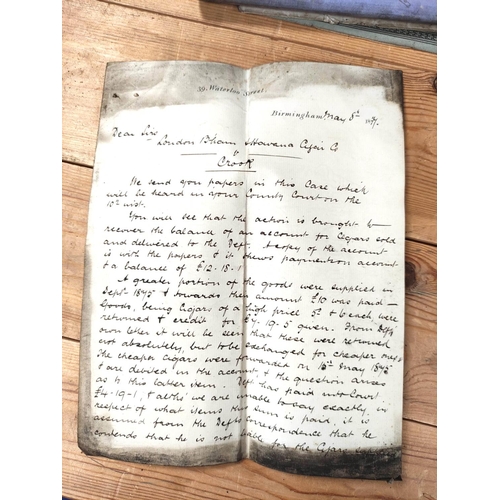 39, Waterloo Street,
Birmingham, May 8th 18
Dear Sirs
London B'ham & Havana Cigar Co
v
Crook
We send you papers in this Case which
will be heard in your County Court on the
10th inst.
You will see that the action is brought to
recover the balance of an account for Cigars sold
and delivered to the Deft. A copy of the account
is with the papers, & it shews payments on account
& a balance of £12.18.
A greater portion of the goods were supplied in
Septr 1875 & towards their amount £10 was paid –
Goods, being Cigars of a high price & each, were
returned & credit for £7.19.5 given. From Defts
own letter it will be seen that these were returned
not absolutely, but to be exchanged for cheaper
The cheaper Cigars were forwarded on 15th May 1875
& are debited in the account, & the question arises
as to this latter item. Deft has paid into Court
£4.19.1, & altho' we are unable to say exactly in
respect of what items this sum is paid, it is
assumed from the Defts correspondence that he
contends that he is not liable for the Cigars